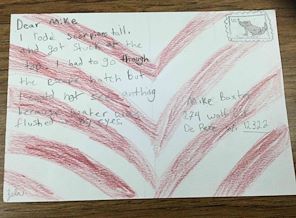 Dear Mike
I rode scorpions tail,
and got stuck at the
top. I had to go through
the escape hatch but
I could not see anything
because water was
flushed my eyes.
Mike Baxter
274 wolf
De Pere WI 12322